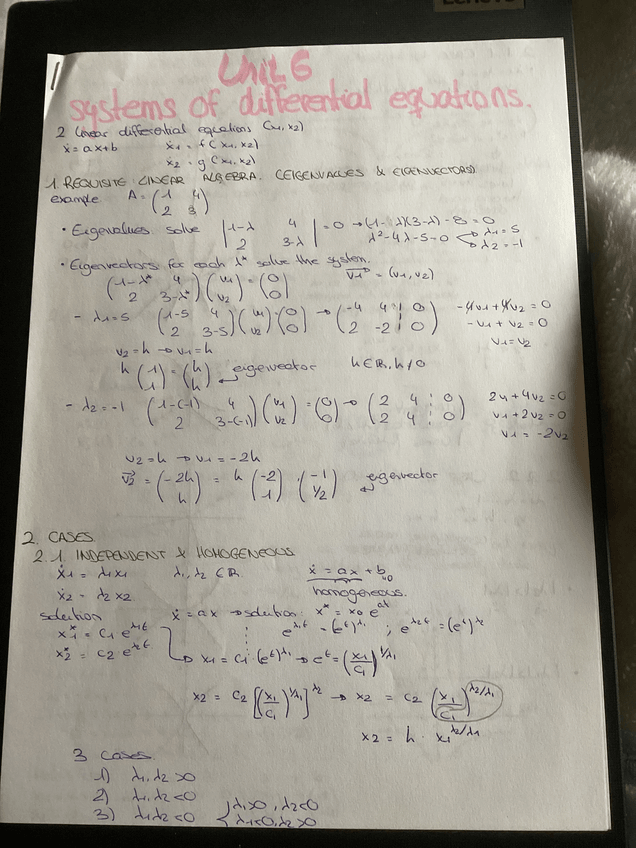 Lenovo
Unit 6
systems of differential equations.
2 linear differential equations (x1, x2)
ẋ = ax+b    ẋ1 = f(x1, x2)
ẋ2 = g(x1, x2)
1. REQUISITE LINEAR ALGEBRA. (EIGENVALUES & EIGENVECTORS)
example A = (1 4
2 3)
• Eigenvalues. solve |1-λ 4
2 3-λ| = 0 → (1-λ)(3-λ) - 8 = 0
λ² - 4λ - 5 = 0 λ1 = 5
λ2 = -1
• Eigenvectors for each λ* solve the system. v1 = (v1, v2)
(1-λ* 4
2 3-λ*) (v1
v2) = (0
0)
- λ1 = 5 (1-5 4
2 3-5) (v1
v2) = (0
0) → (-4 4 | 0
2 -2 | 0)
-4v1 + 4v2 = 0
-v1 + v2 = 0
v1 = v2
v2 = h → v1 = h
h (1
1) = (h
h) eigenvector h∈ℝ, h≠0
- λ2 = -1 (1-(-1) 4
2 3-(-1)) (v1
v2) = (0
0) → (2 4 | 0
2 4 | 0)
2v1 + 4v2 = 0
v1 + 2v2 = 0
v1 = -2v2
v2 = h → v1 = -2h
v2 = (-2h
h) = h (-2
1) · (-1
1/2) eigenvector
2. CASES.
2.1. INDEPENDENT & HOMOGENEOUS
ẋ1 = λ1 x1    λ1, λ2 ∈ ℝ.    ẋ = ax + b =0
ẋ2 = λ2 x2.    homogeneous.
solution    ẋ = ax → solution: x* = x0 e^at
x1* = c1 e^λ1t    e^λ1t = (e^t)^λ1 ; e^λ2t = (e^t)^λ2
x2* = c2 e^λ2t    → x1 = c1 · (e^t)^λ1 → e^t = (x1/c1)^1/λ1
x2 = c2 [(x1/c1)^1/λ1]^λ2 → x2 = c2 (x1/c1)^λ2/λ1
x2 = h · x1^λ2/λ1
3 cases.
1) λ1, λ2 > 0
2) λ1, λ2 < 0
3) λ1 λ2 < 0 { λ1 > 0, λ2 < 0
λ1 < 0, λ2 > 0